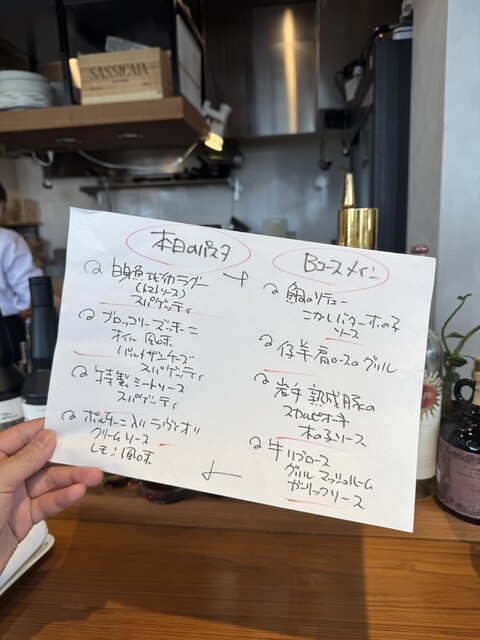 SASSICAIA
本日のパスタ
白身魚と九条ラグー
(トマトソース)
スパゲッティ
ブロッコリーズッキーニ
オイル風味
パルミジャンチーズ
スパゲッティ
特製ミートソース
スパゲッティ
ポルチーニ入りラヴィオリ
クリームソース
レモン風味
Bコースメイン
鮪のソテュー
こがしバターきの子
ソース
仔羊肩ロースのグリル
岩手熟成豚の
スカロピオーネ
木の子ソース
牛リブロース
グリル マッシュルーム
ガーリックソース